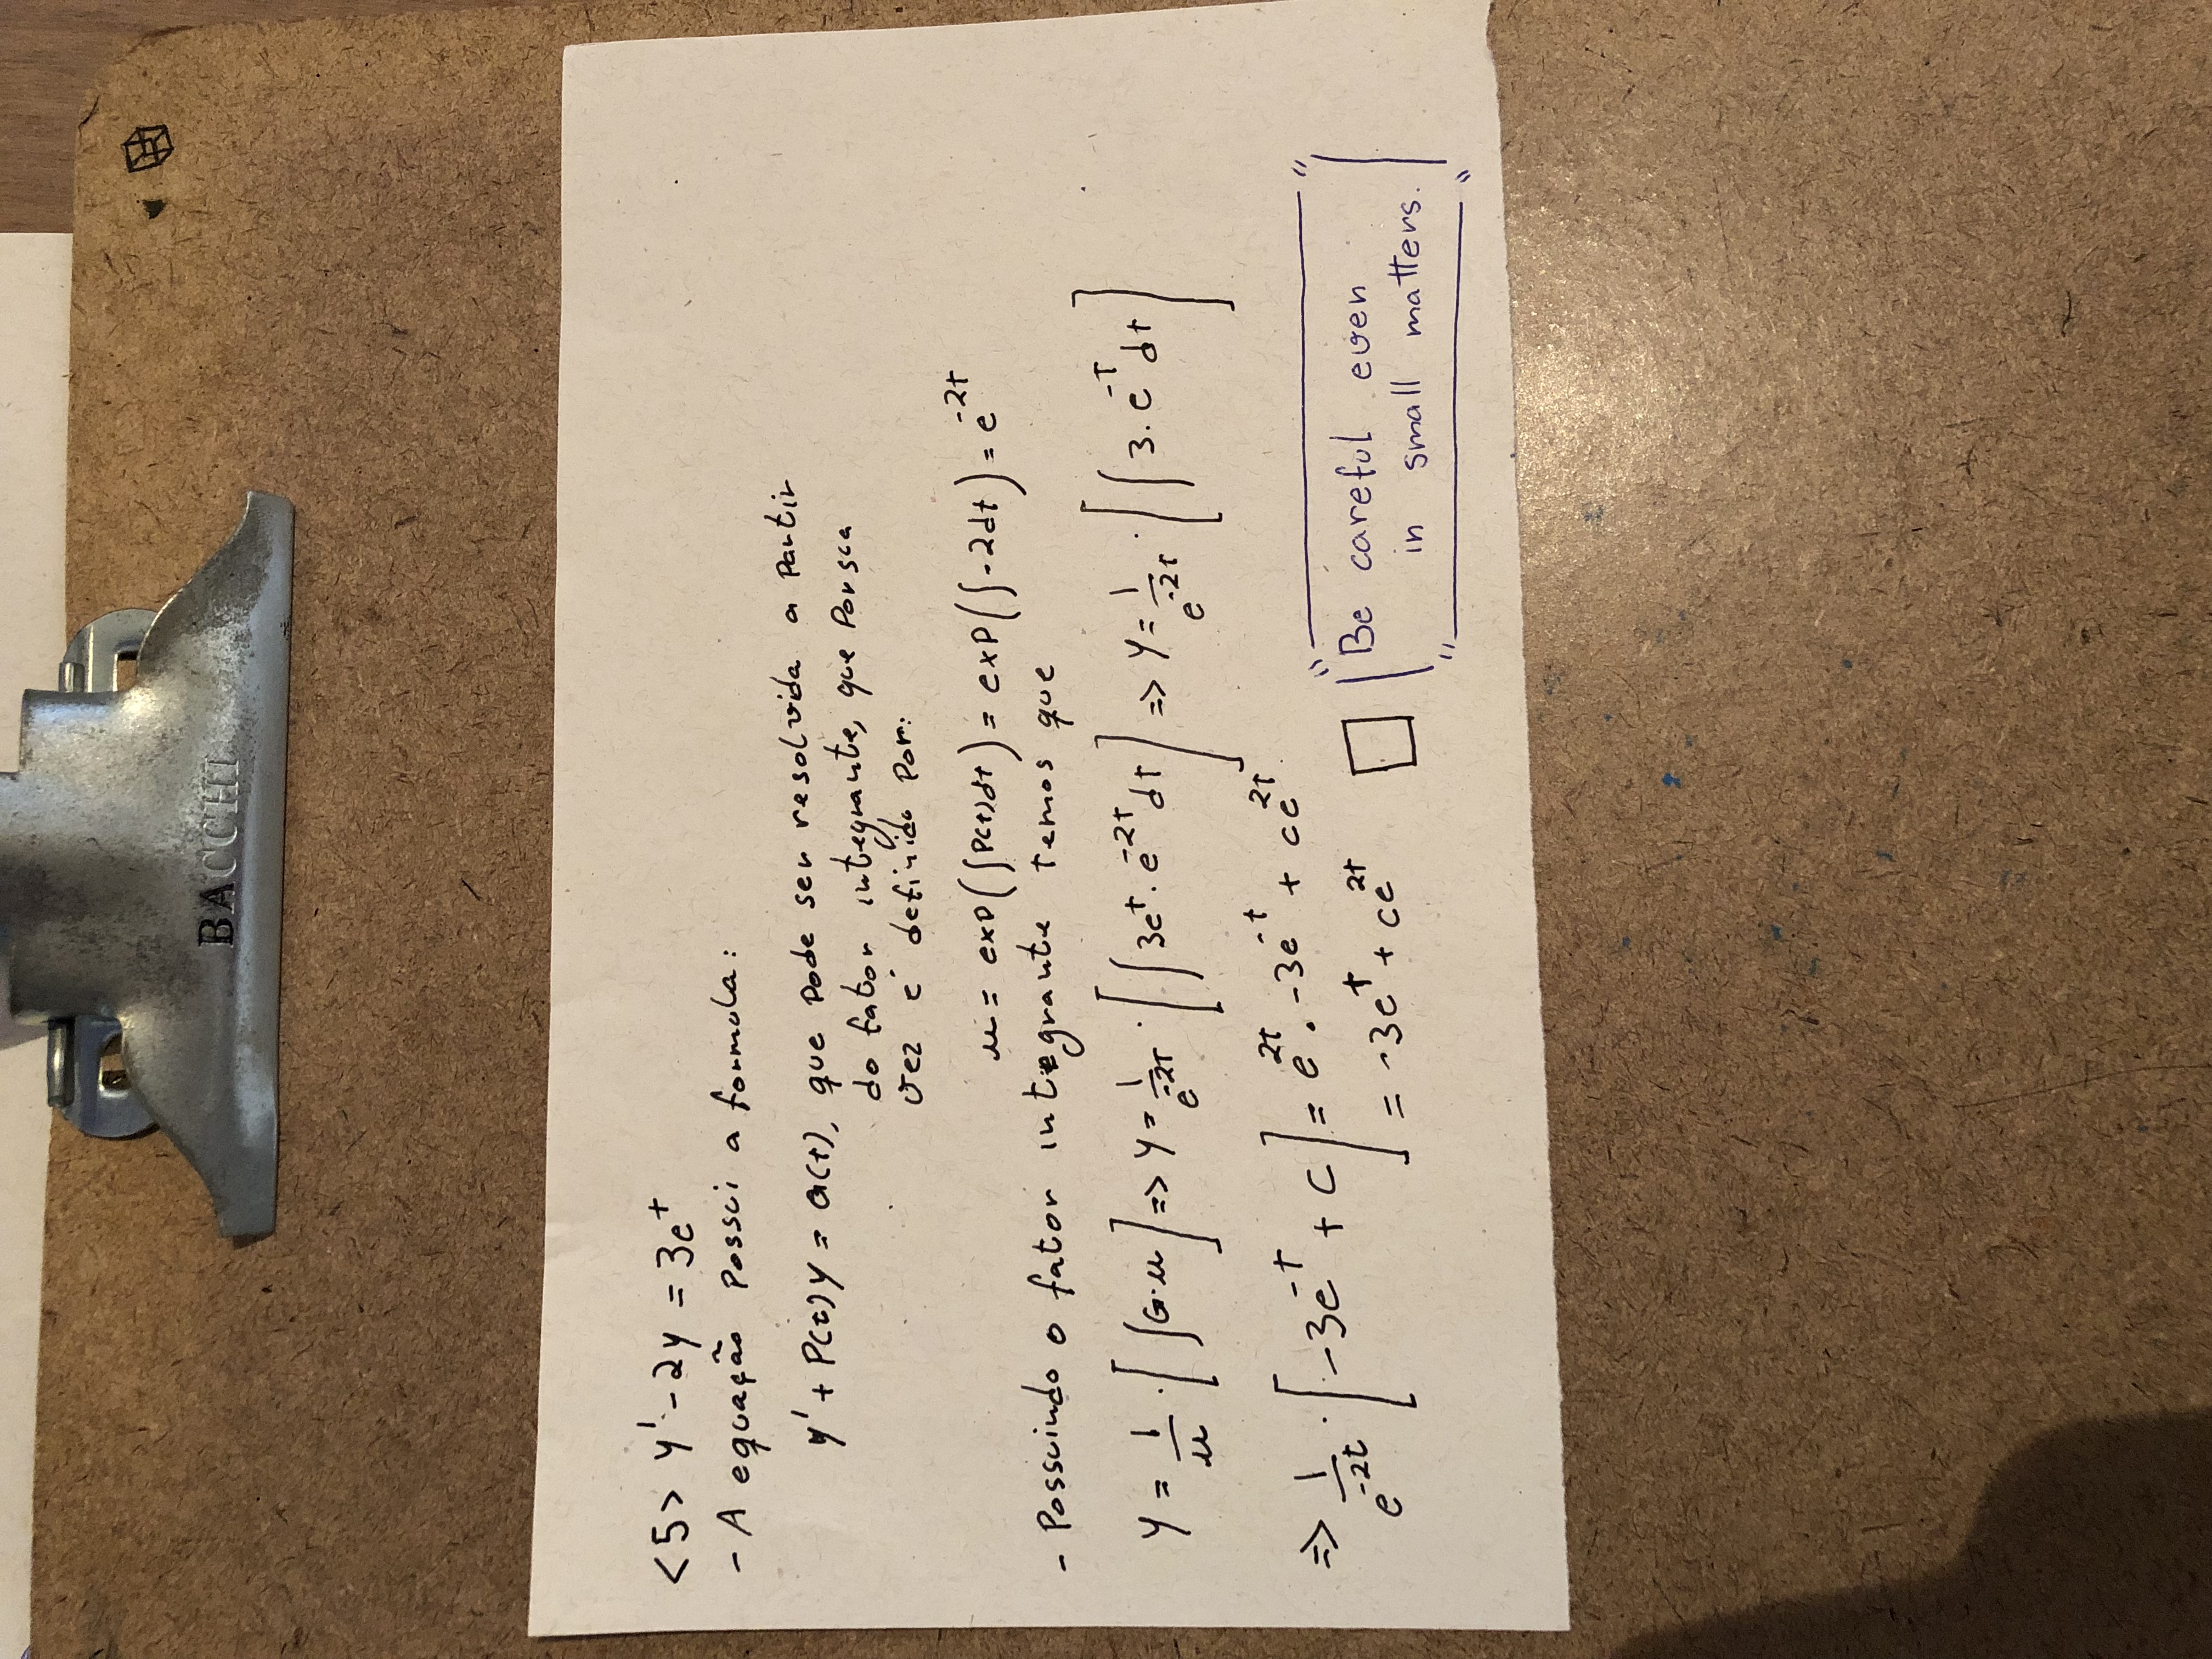 BACCHI
<5> y' - 2y = 3e^t
- A equação possui a formula:
y' + P(t)y = G(t), que pode ser resolvida a partir
do fator integrante, que por sua
vez é definido por:
μ = exp(∫P(t)dt) = exp(∫-2dt) = e^{-2t}
- Possuindo o fator integrante temos que
y = 1/μ · [∫G·μ] => y = 1/e^{-2t} · [∫3e^t · e^{-2t} dt] => y = 1/e^{-2t} · [∫3 · e^{-t} dt]
=> 1/e^{-2t} · [-3e^{-t} + C] = e^{2t} · -3e^{-t} + ce^{2t}
= -3e^t + ce^{2t} □
"Be careful even
in small matters."